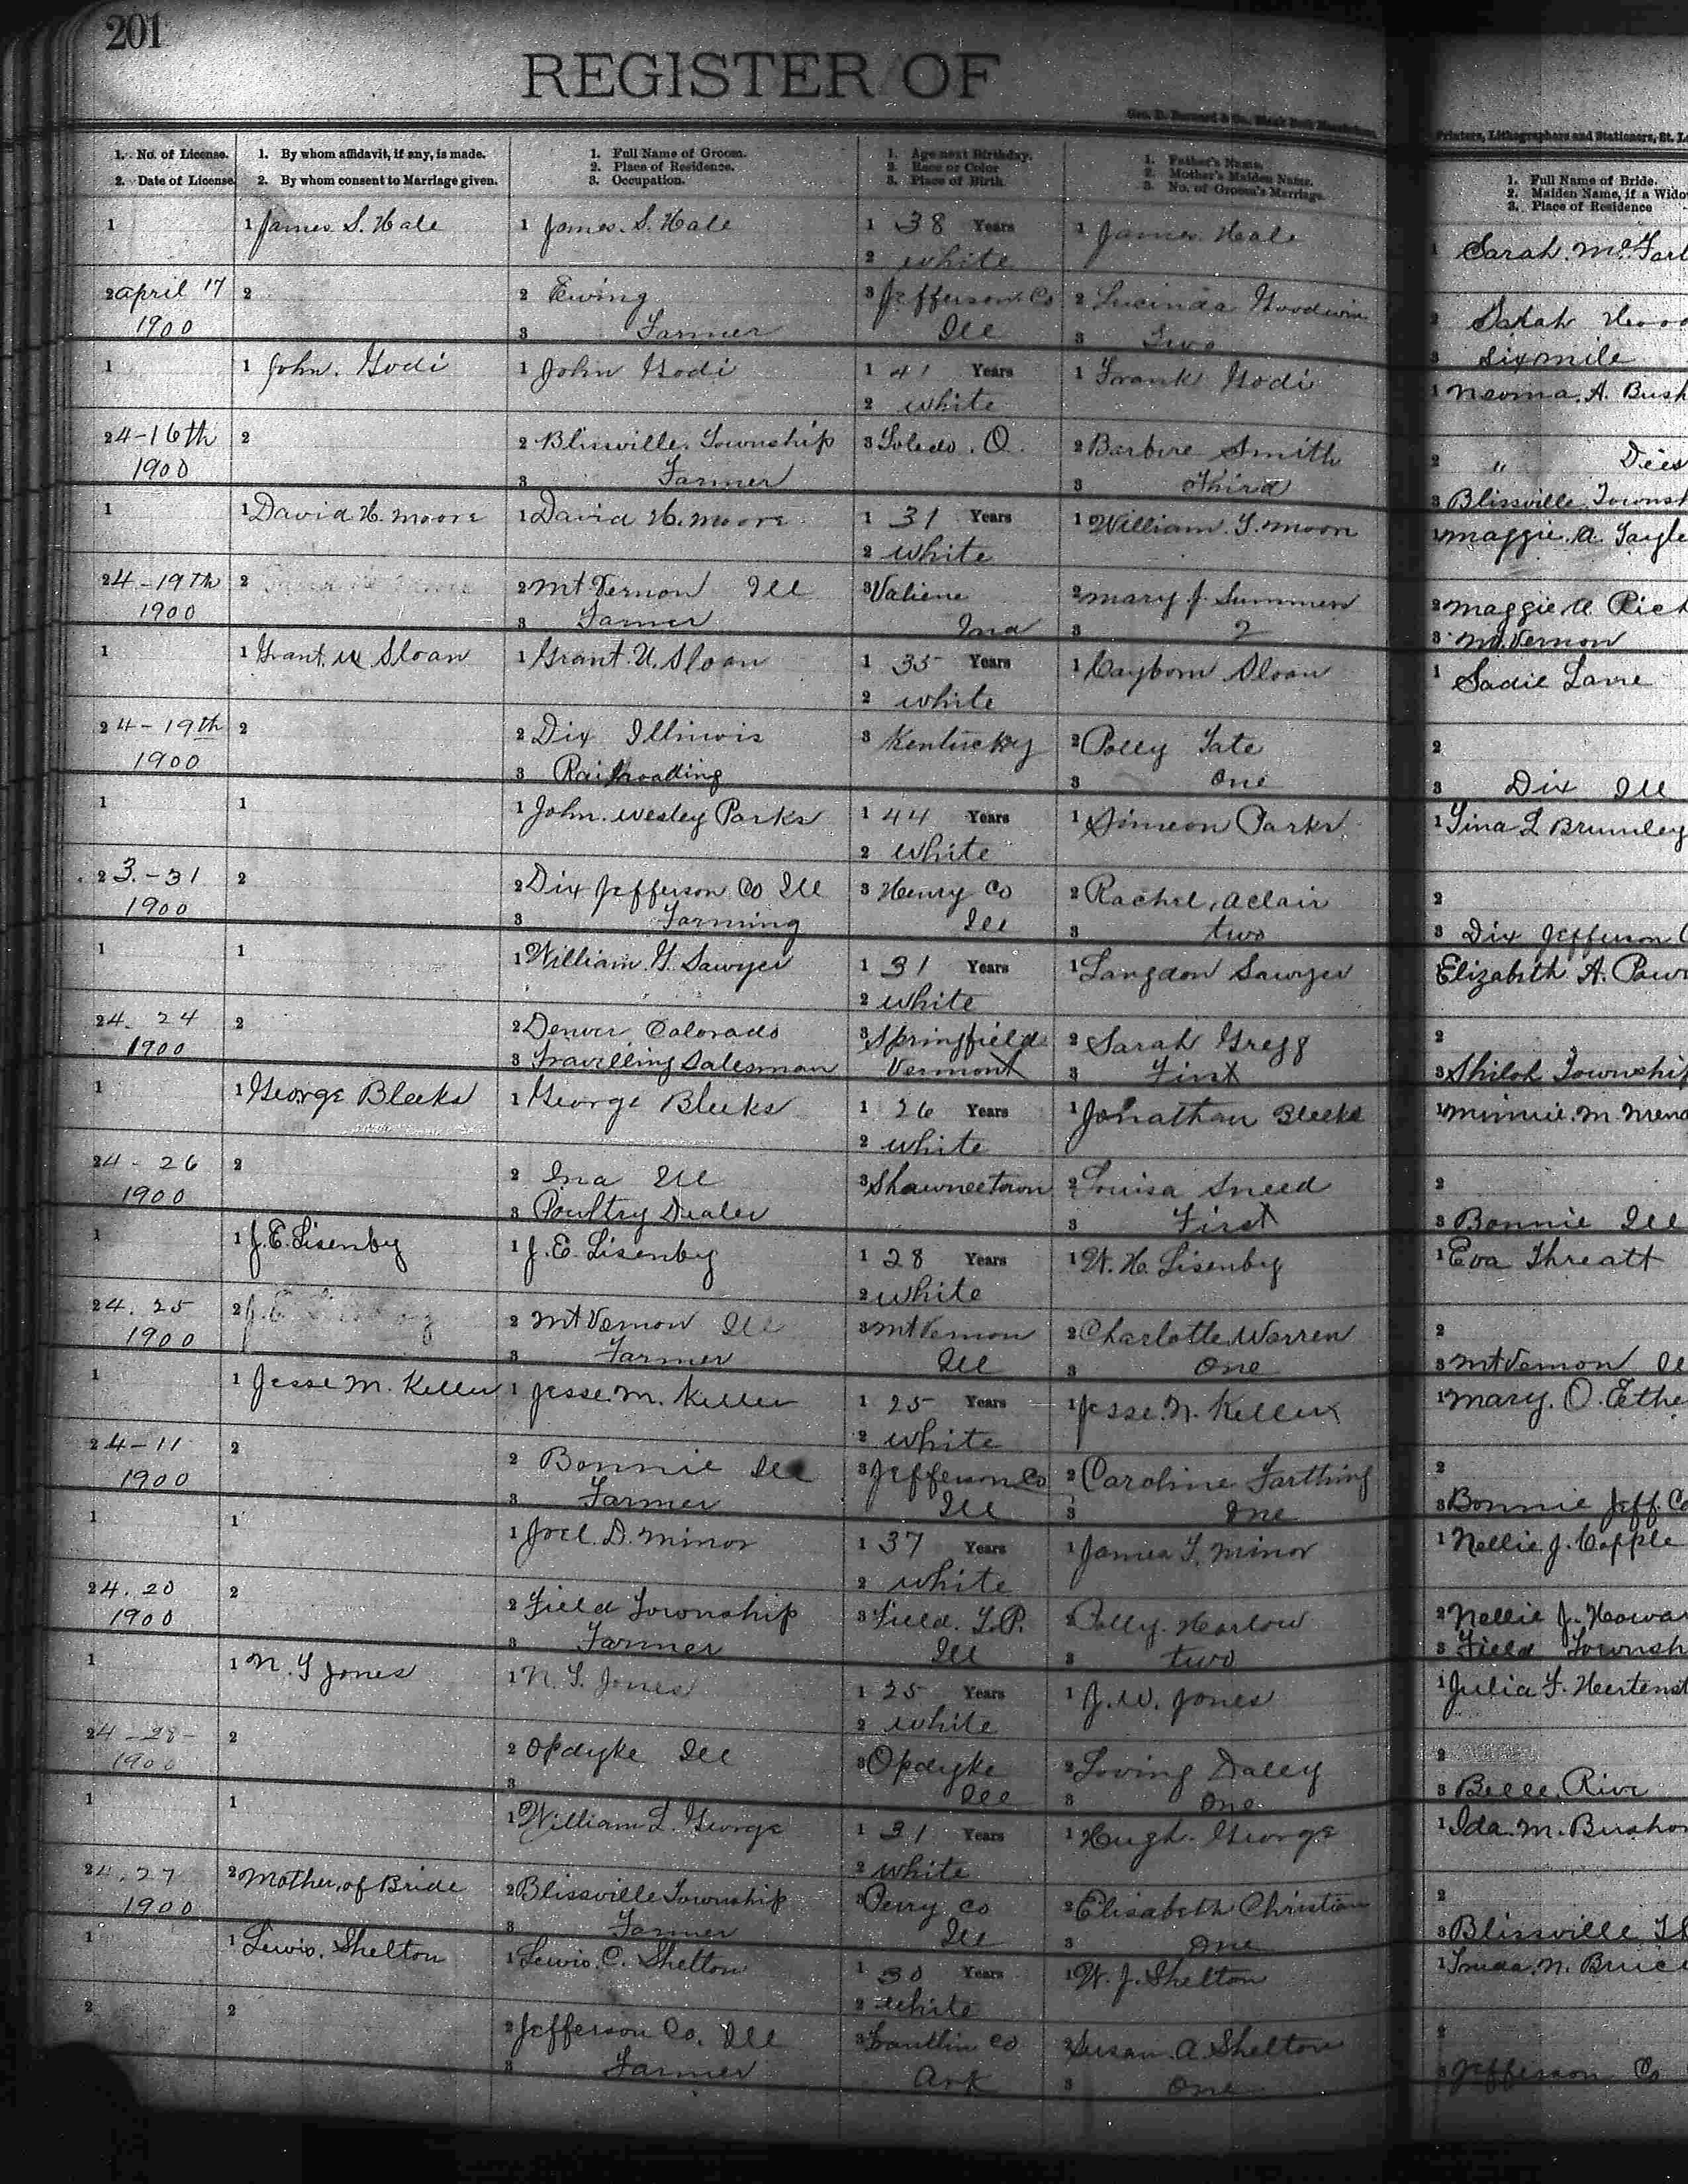 201
REGISTER OF
Geo. D. Barnard & Co., Blank Book Manufacturers,
Printers, Lithographers and Stationers, St. L
1. No. of License.
2. Date of License.
1. By whom affidavit, if any, is made.
2. By whom consent to Marriage given.
1. Full Name of Groom.
2. Place of Residence.
3. Occupation.
1. Age next Birthday.
2. Race or Color
3. Place of Birth
1. Father's Name.
2. Mother's Maiden Name.
3. No. of Groom's Marriage.
1. Full Name of Bride.
2. Maiden Name, if a Wido
3. Place of Residence
1 1 James S. Hale 1 James. S. Hale 1 38 Years 1 James Hale 1 Sarah. McFarl
2 white
2 april 17 2 2 Ewing 3 Jefferson Co 2 Lucinda Goodwin 2 Sarah
1900 3 Farmer Ill 3 Two 3 Sixmile
1 1 John. Godi 1 John Godi 1 41 Years 1 Frank Godi 1 Neoma. A. Bush
2 white
2 4-16th 2 2 Blissville. Township 3 Toledo. O. 2 Barbre Smith 2 " Dees
1900 3 Farmer 3 Third 3 Blissville Townsh
1 1 David H. Moore 1 David H. Moore 1 31 Years 1 William. T. Moon 1 Maggie. A. Tayle
2 white
2 4-19th 2 2 Mt Vernon Ill 3 Valiene 2 Mary J. Summers 2 Maggie A Rich
1900 3 Famer Ind 3 2 3 Mt. Vernon
1 1 Grant. U Sloan 1 Grant. U. Sloan 1 35 Years 1 Claybom Sloan 1 Sadie Lane
2 white
2 4-19th 2 2 Dix Illinois 3 Kentucky 2 Polly Tate 2
1900 3 Railroading 3 One 3 Dix Ill
1 1 1 John. Wesley Parks 1 44 Years 1 Simeon Parks 1 Tina L Brumley
2 white
2 3.-31 2 2 Dix Jefferson Co Ill 3 Henry Co 2 Rachel, Aclair 2
1900 3 Farming Ill 3 two 3 Dix Jefferson C
1 1 1 William. G. Sawyer 1 31 Years 1 Langdon Sawyer Elizabeth A. Paw
2 white
2 4. 24 2 2 Denver, Colorado 3 Springfield 2 Sarah Gregg 2
1900 3 Travelling Salesman Vermont 3 First 3 Shiloh Township
1 1 George Bleeks 1 George Bleeks 1 26 Years 1 Jonathan Bleeks 1 Minnie. M. Mend
2 white
2 4-26 2 2 Ina Ill 3 Shawneetown 2 Louisa Sneed 2
1900 3 Poultry Dealer 3 First 3 Bonnie Ill
1 1 J. E. Lisenby 1 J. E. Lisenby 1 28 Years 1 W. H. Lisenby 1 Eva Threatt
2 white
2 4. 25 2 2 Mt Vernon Ill 3 Mt Vernon 2 Charlotte Warren 2
1900 3 Farmer Ill 3 One 3 Mt Vernon Il
1 1 Jesse M. Keller 1 Jesse. M. Keller 1 25 Years 1 Jesse. N. Keller 1 Mary. O. Ethe
2 white
2 4-11 2 2 Bonnie Ill 3 Jefferson Co 2 Caroline Farthing 2
1900 3 Farmer Ill 3 One 3 Bonnie Jeff. Co
1 1 1 Joel. D. Minor 1 37 Years 1 James T. Minor 1 Nellie J. Copple
2 white
2 4. 20 2 2 Field Township 3 Field. T.P. 2 Polly. Harlow 2 Nellie J. Howar
1900 3 Farmer Ill 3 two 3 Field Townsh
1 1 N. T Jones 1 N. T. Jones 1 25 Years 1 J. W. Jones 1 Julia F. Hertenst
2 white
2 4-28- 2 2 Opdyke Ill 3 Opdyke 2 Loving Daley 2
1900 3 Ill 3 One 3 Belle. Rive
1 1 1 William L. George 1 31 Years 1 Hugh. George 1 Ida. M. Bushon
2 white
2 4. 27 2 Mother, of Bride 2 Blissville Township 3 Perry Co 2 Elisabeth Christian 2
1900 3 Farmer Ill 3 One 3 Blissville
1 1 Lewis. Shelton 1 Lewis. C. Shelton 1 30 Years 1 W. J. Shelton 1 N. Bruce
2 white
2 2 2 Jefferson Co. Ill 3 Co 2 Susan. A. Shelton 2
3 Farmer Ark 3 One 3 Jefferson Co